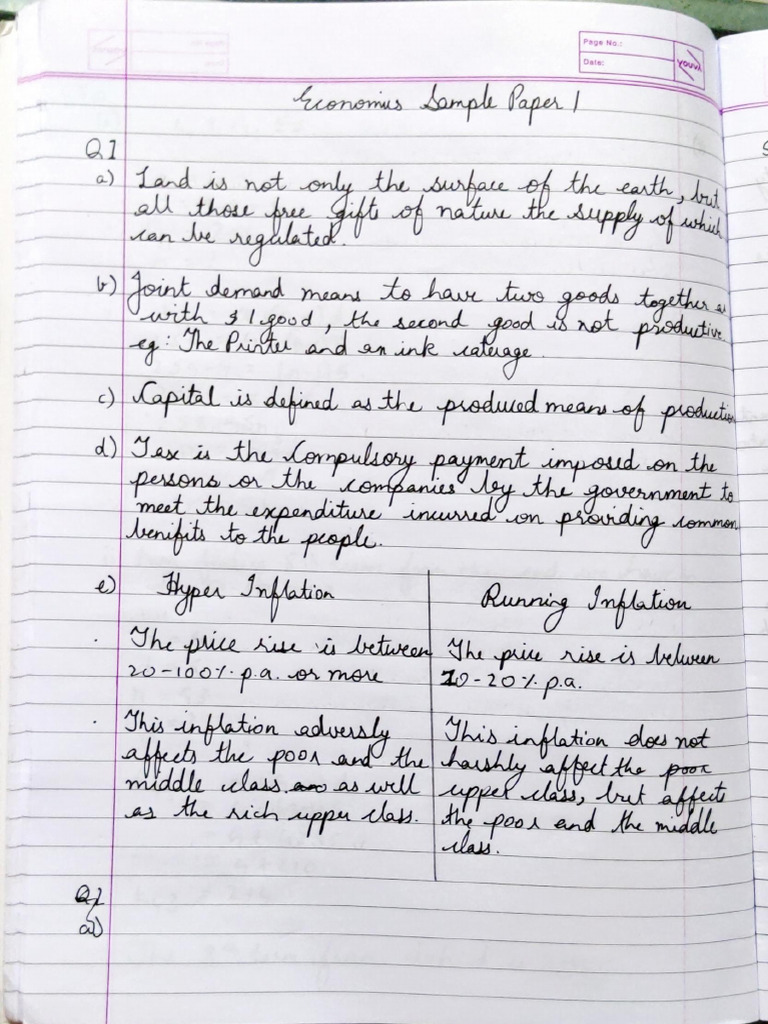 Page No.:
Date:
youva
Economics Sample Paper 1
Q1
a) Land is not only the surface of the earth, but
all those free gifts of nature the supply of which
can be regulated.
b) Joint demand means to have two goods together as
with 1 good, the second good is not productive
eg: The Printer and an ink caterage.
c) Capital is defined as the produced means of production
d) Tax is the Compulsory payment imposed on the
persons or the companies by the government to
meet the expenditure incurred on providing common
benifits to the people.
e) Hyper Inflation Running Inflation
The price rise is between The price rise is between
20-100% p.a. or more 10-20% p.a.
This inflation adversly This inflation does not
affects the poor and the harshly affect the poor
middle class as well upper class, but affects
as the rich upper class. the poor and the middle
class.
Q2
a)